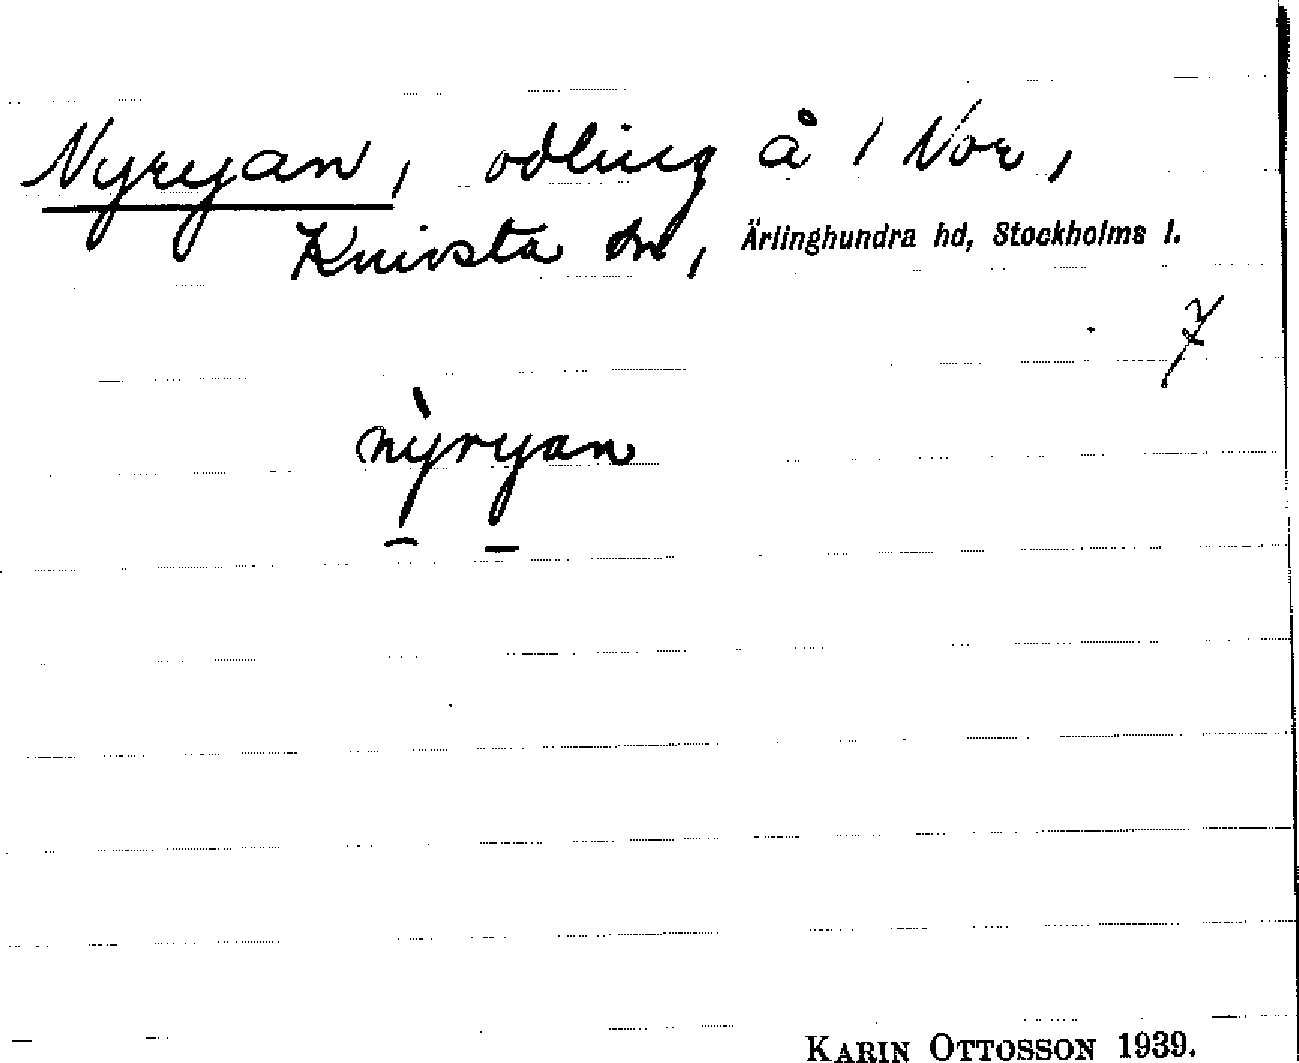 Nyryan, odling å 1 Nor,
Knivsta sn, Ärlinghundra hd, Stockholms l.
nỳryan
KARIN OTTOSSON 1939.